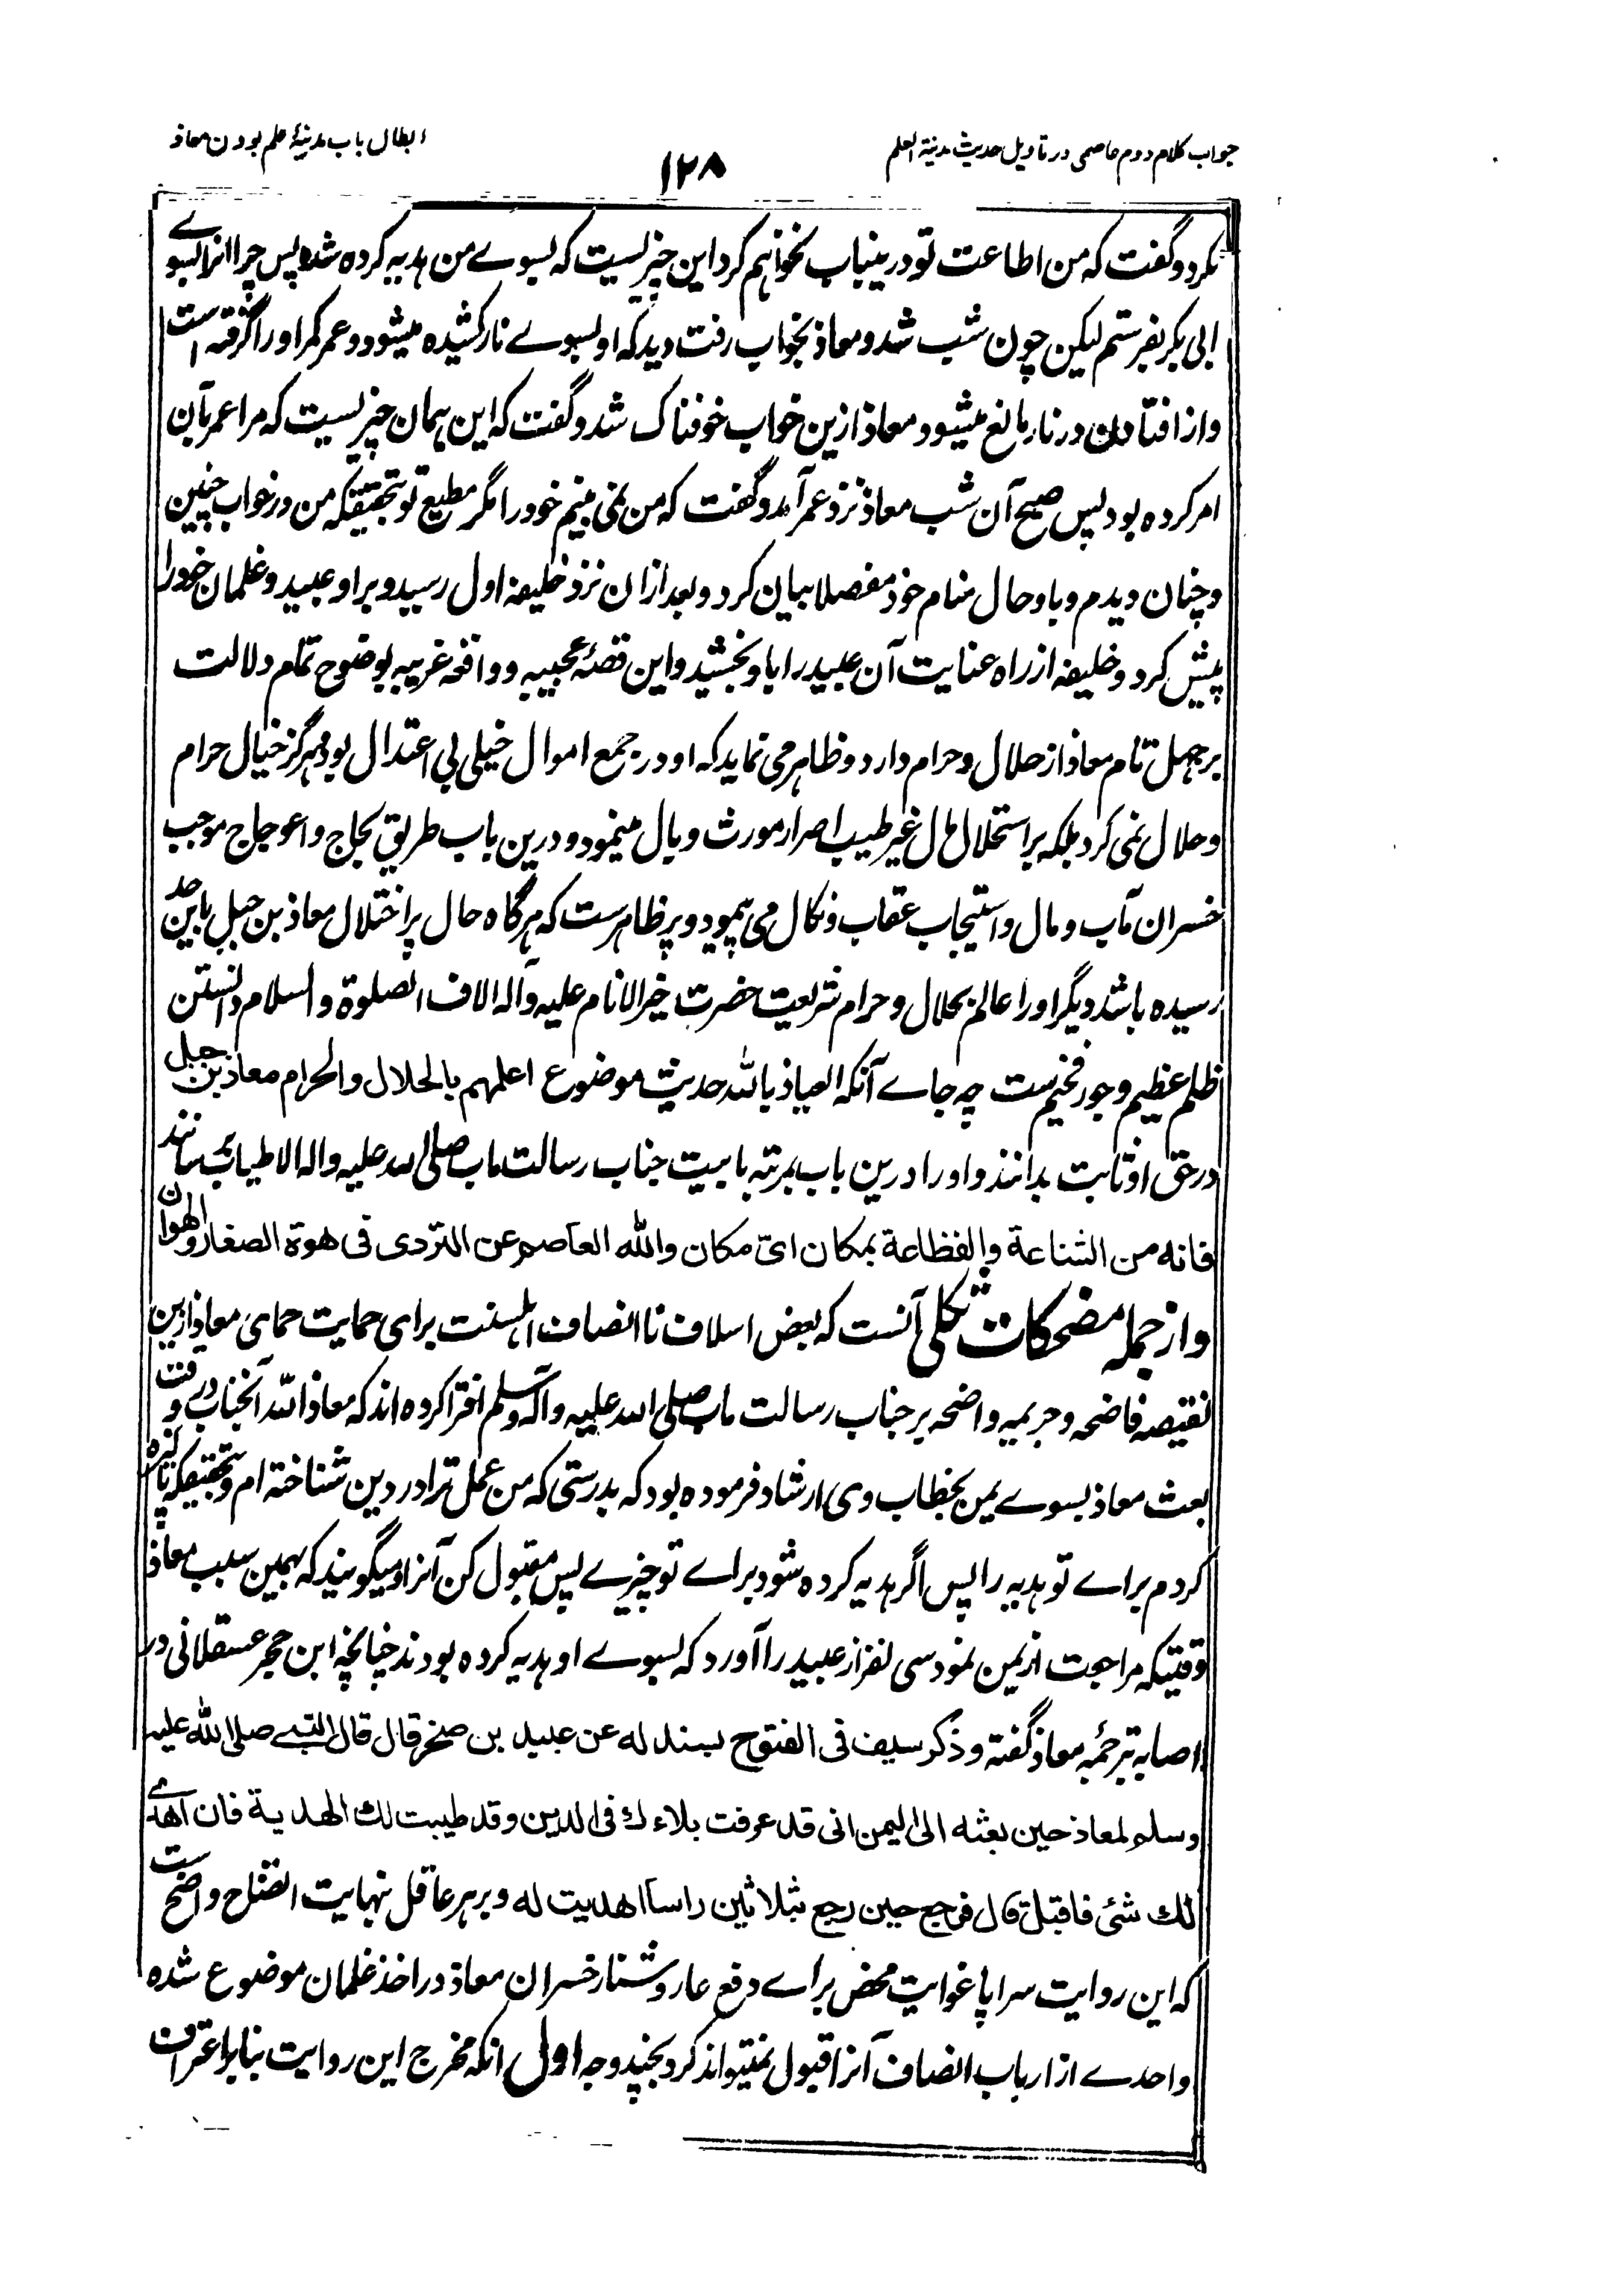 جواب کلام دوم عاصمی در تاویل حدیث مدینة العلم
۱۲۸
ابطال باب مدینۂ علم بودن معاذ
نکرد و گفت که من اطاعت تو درینباب نخواهم کرد این چیزیست که بسوے من هدیه کرده شده پس چرا آنرا بسوے
ابی بکر بفرستم لیکن چون شب شد و معاذ بخواب رفت دید که او بسوے نار کشیده میشود و عمر کمر او را گرفته است
و از افتادن در نار مانع میشود معاذ ازین خواب خوفناک شد و گفت که این همان چیزیست که مرا عمر بآن
امر کرده بود پس صبح آن شب معاذ نزد عمر آمد و گفت که من نمی بینم خود را مگر مطیع تو بتحقیقکه من در خواب چنین
و چنان دیدم و باو حال منام خود مفصلا بیان کرد و بعد ازان نزد خلیفه اول رسید و بر او عبید و غلمان خود را
پیش کرد و خلیفه از راه عنایت آن عبید را باو بخشید و این قصۂ عجیبه و واقعه غریبه بوضوح تمام دلالت
بر جهل تام معاذ از حلال و حرام دارد و ظاهر می نماید که او در جمع اموال خیلی بی اعتدال بود هرگز خیال حرام
و حلال نمی کرد بلکه بر استحلال مال غیر طیب اصرار مورث وبال مینمود و درین باب طریق لجاج و اعوجاج موجب
خسران مآب و مال و استیجاب عقاب و نکال می پیمود و پر ظاهرست که هرگاه حال پر اختلال معاذ بن جبل باین حد
رسیده باشد دیگر او را عالم بحلال و حرام شریعت حضرت خیر الانام علیه وآله الاف الصلوة والسلام دانستن
ظلم عظیم و جور فخیم ست چه جاے آنکه العیاذ بالله حدیث موضوع اعلمهم بالحلال والحرام معاذ بن جبل
در حق او ثابت بدانند و او را درین باب بمرتبه بابیت جناب رسالت ماب صلی الله علیه واله الاطیاب رسانند
فانه من الشناعة والفظاعة بمکان ای مکان والله العاصم عن التردی فی هوة الصغار والهوان
و از جمله مضحکات ثکلی آنست که بعض اسلاف نا انصاف اهلسنت برای حمایت حمای معاذ ازین
نقیصه فاضحه و جریمه واضحه بر جناب رسالت ماب صلی الله علیه وآله وسلم افترا کرده اند که معاذ الله آنجناب در وقت
بعث معاذ بسوے یمن بخطاب وی ارشاد فرموده بود که بدرستی که من عمل ترا در دین شناخته ام و بتحقیقکه پاکیزه
کردم براے تو هدیه را پس اگر هدیه کرده شود براے تو چیزے پس مقبول کن آنرا و میگویند که بهمین سبب معاذ
وقتیکه مراجعت از یمن نمود سی نفر از عبید را آورد که بسوے او هدیه کرده بودند چنانچه ابن حجر عسقلانی در
اصابه بترجمۂ معاذ گفته و ذکر سیف فی الفتوح بسند له عن عبید بن صخر قال قال النبے صلی الله علیه
وسلم لمعاذ حین بعثه الی الیمن انی قد عرفت بلاءك فی الدین وقد طیبت لك الهدیة فان اهدے
لك شئ فاقبل قال فرجع حین رجع بثلاثین راسا اهدیت له و بر هر عاقل نهایت اتضاح و واضح ست
که این روایت سراپا غوایت محض براے دفع عار و شنار خسران معاذ در اخذ غلمان موضوع شده
و احدے از ارباب انصاف آنرا قبول نمیتواند کرد بچند وجه اول انکه مخرج این روایت بنابر اعتراف